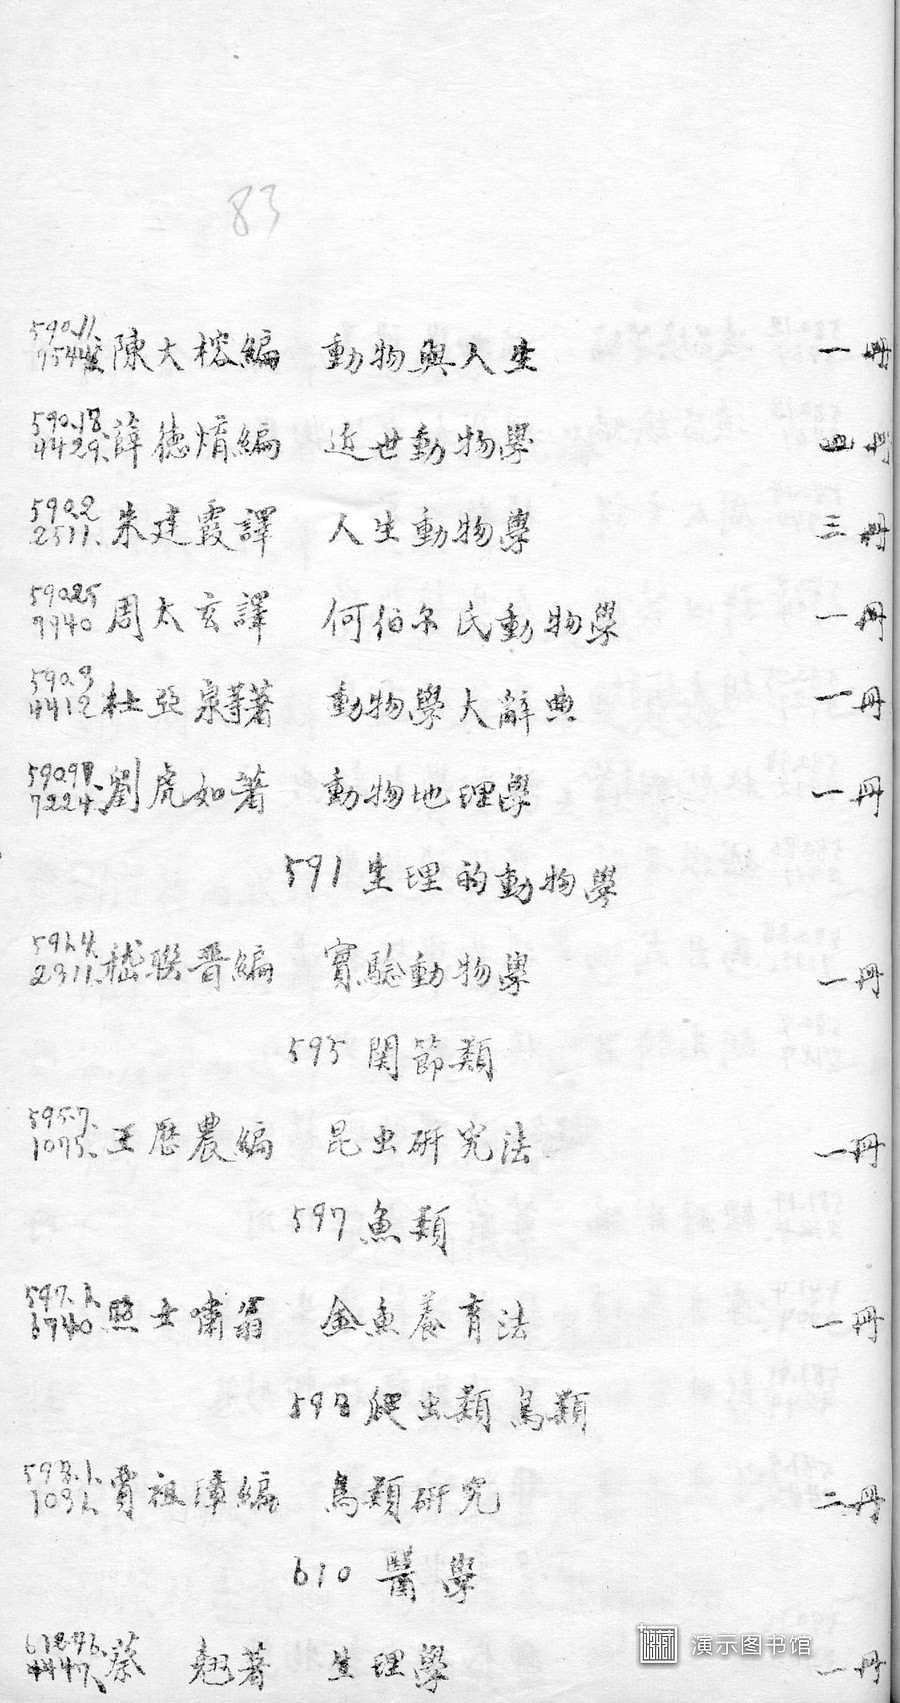 83
590.11
陳大榕編 動物與人生 一冊
590.18
4429. 薛德焴編 近世動物學 四冊
590.2
2511. 朱建霞譯 人生動物學 三冊
590.25
周太玄譯 何伯尔氏動物學 一冊
590.3
4412 杜亞泉等著 動物學大辭典 一冊
590.98
7224. 劉虎如著 動物地理學 一冊
591 生理的動物學
2311. 嵇联晋編 實驗動物學 一冊
595 関節類
595.7.
1075. 王歷農編 昆虫研究法 一冊
597 魚類
6740. 照士嘯翁 金魚養育法 一冊
598 爬虫類 鳥類
598.1.
賈祖璋編 鳥類研究 二冊
610 醫學
4447. 蔡 翹著 生理學 一冊
演示图书馆